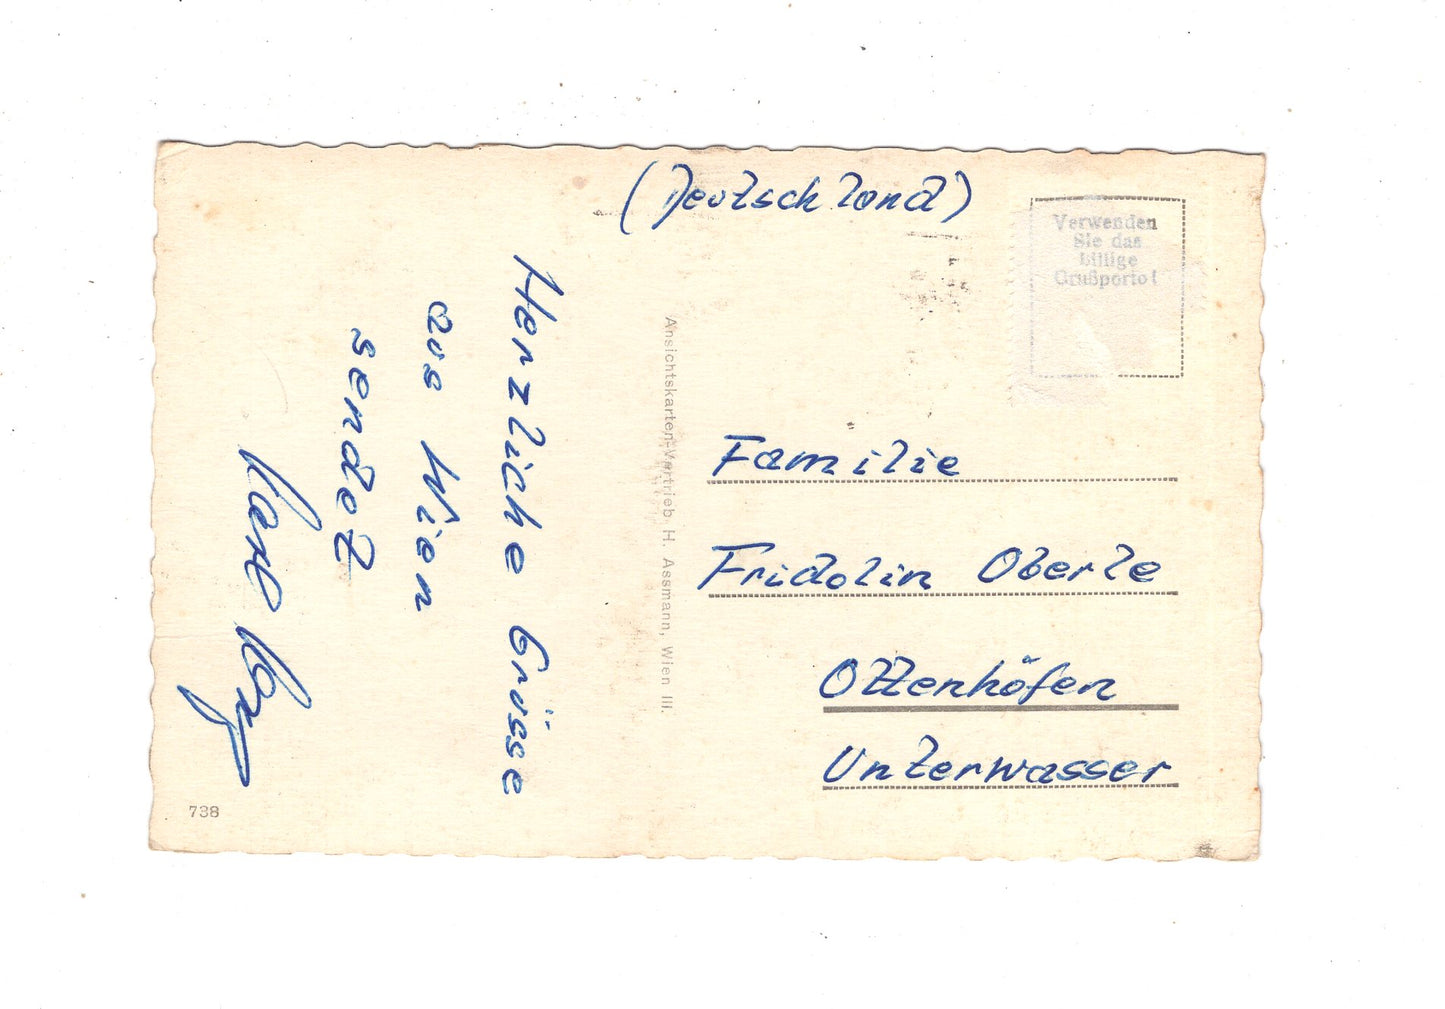 (Deutschland)
Verwenden
Sie das
billige
Grußporto!
Herzliche Grüsse
aus Wien
sendet
Ansichtskarten-Vertrieb H. Assmann, Wien III.
Familie
Fridolin Oberle
Ottenhöfen
Unterwasser
738